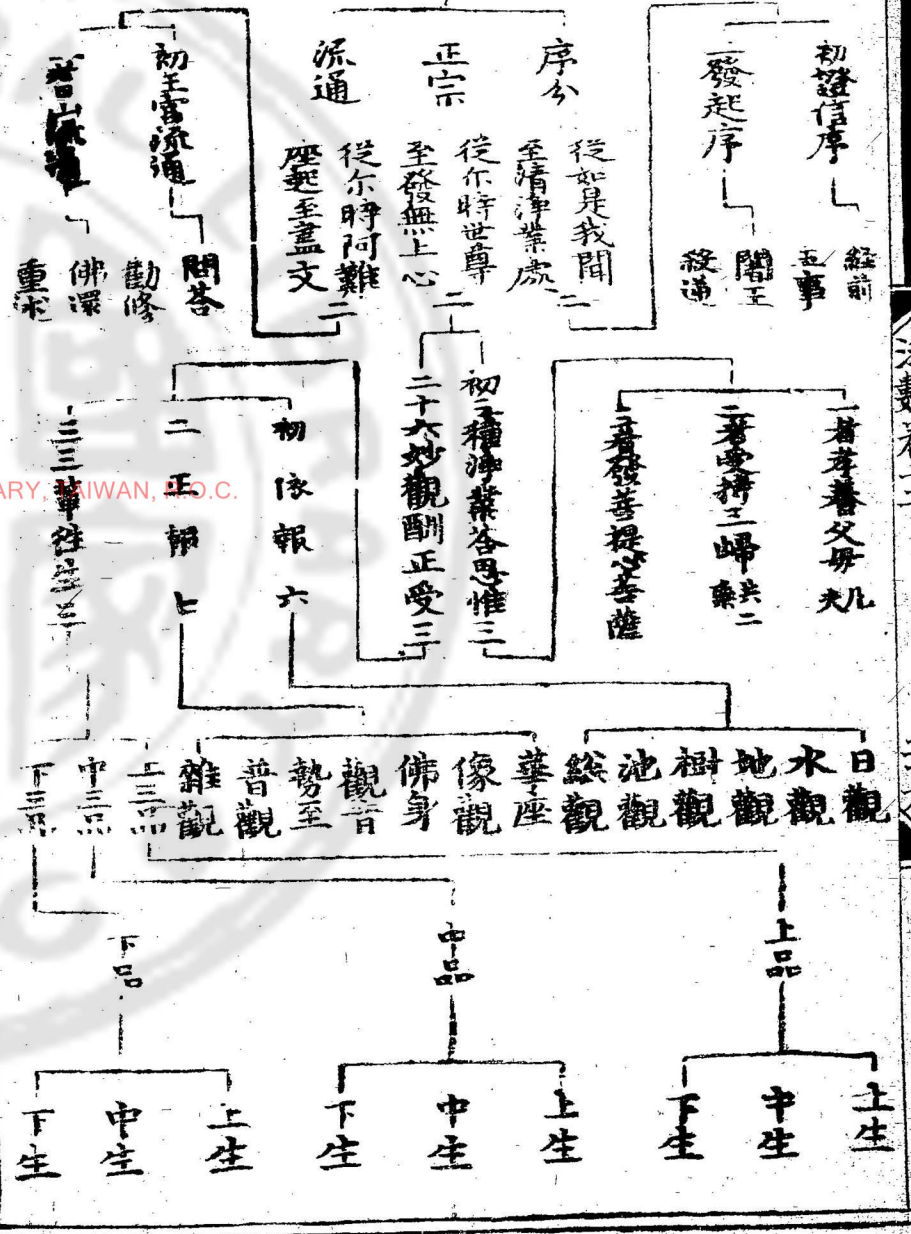 初證信序
經前
五事
二發起序
闍王
殺逆
序分
從如是我聞
至清淨業處
二
正宗
從尔時世尊
至發無上心
二
流通
從尔時阿難
座起至盡文
二
初王宮流通
問荅
勸修
佛還
重求
一者孝養父母
凡夫
二者受持三歸
共二乘
三者發菩提心
菩薩
初三種淨業荅思惟三
二十六妙觀酬正受三
初依報六
二正報七
三三輩往生三
日觀
水觀
地觀
樹觀
池觀
總觀
華座
像觀
佛身
觀音
勢至
普觀
雜觀
上三品
中三品
下三品
上品
中品
下品
上生
中生
下生
上生
中生
下生
上生
中生
下生
ARY, TAIWAN, R.O.C.